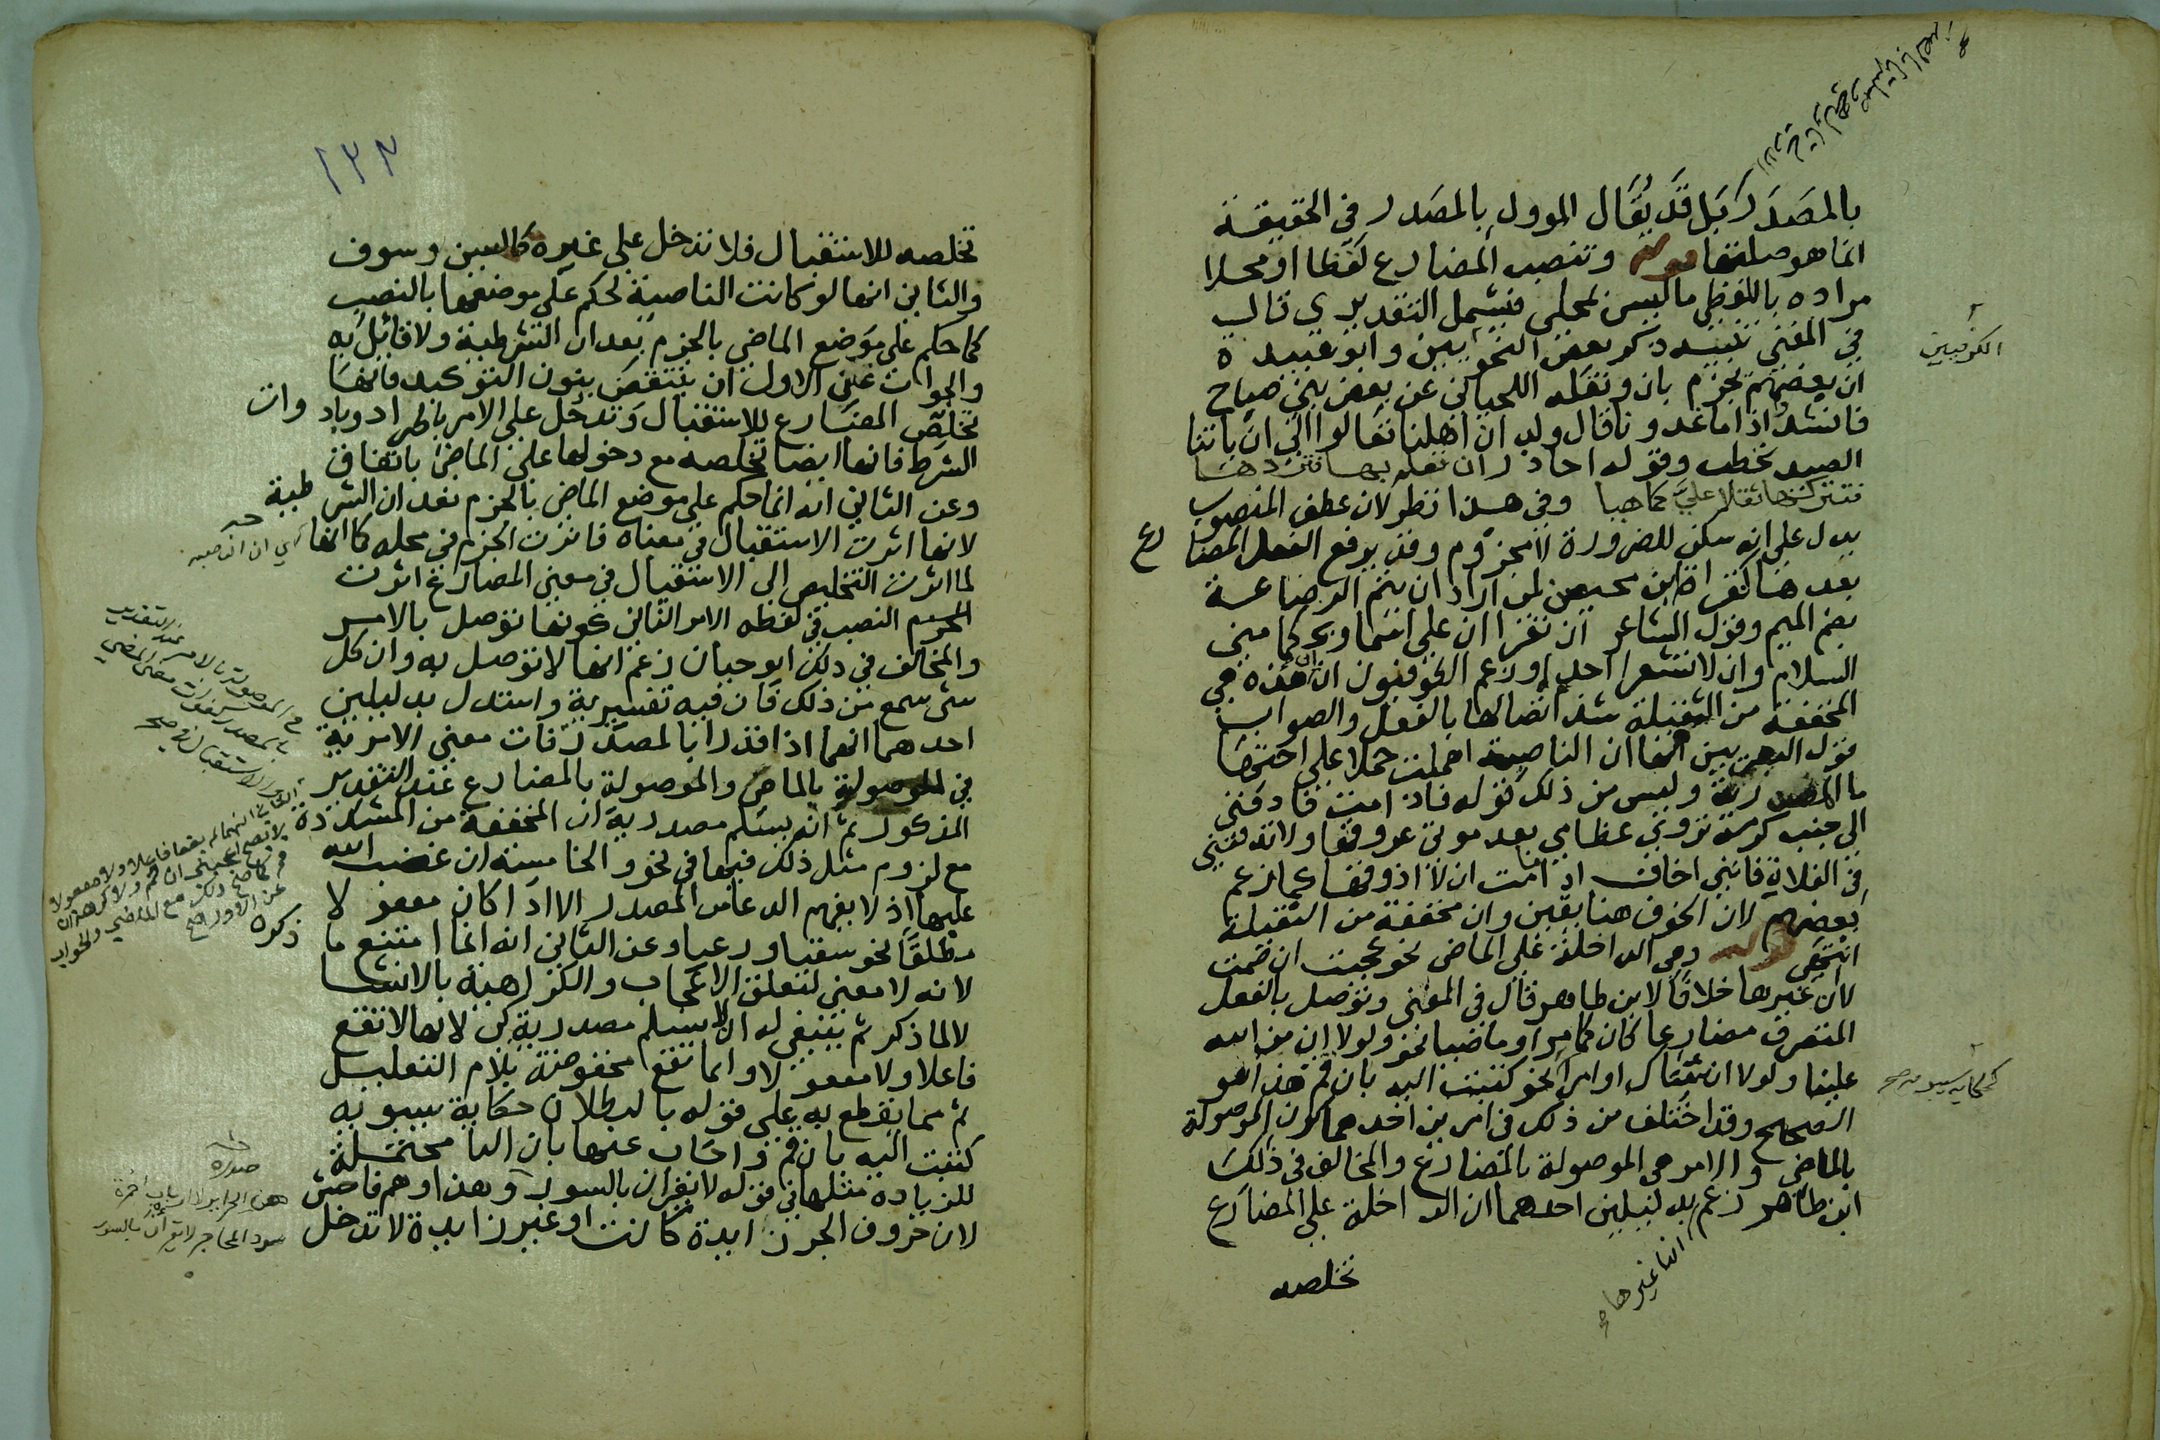 بالمصدر بل قد يقال الموول بالمصدر في الحقيقة
انما هو صلتها قوله وتنصب المضارع لفظا او محلا
مراده باللفظي ما ليس بمحلي فيشمل التقديري قال
في المغني تنبيه ذكر بعض النحويين وابو عبيدة
الكوفيين
ان بعضهم يجزم بان ونقله اللحياني عن بعض بني صباح
فانشدوا اذا ما غدونا قال ولدان اهلنا تعالوا الى ان ياتنا
الصيد نحطب وقوله احاذر ان تعلم بها فتردها
فتتركها ثقلا علي كما هيا وفي هذا نظر لان عطف المنصوب
يدل على انه سكن للضرورة لا مجزوم وقد يرفع الفعل المضارع
بعدها كقراة ابن محيصن لمن اراد ان يتم الرضاعة
بضم الميم وقول الشاعر ان تقران على اسما ويحكما مني
السلام وان لا تشعرا احدا وزعم الكوفيون ان هذه هي
المخففة من الثقيلة شذ اتصالها بالفعل والصواب
قول البصريين انها ان الناصبة اهملت حملا على اختها
ما المصدرية وليس من ذلك قوله فاذا مت فادفني
الى جنب كرمة تروي عظامي بعد موتي عروقها ولا تدفنني
في الفلاة فانني اخاف اذا ما مت ان لا اذوقها كما زعم
بعضهم لان الخوف هنا يقين وان مخففة من الثقيلة
انتهى قوله وهي الداخلة على الماضي نحو عجبت ان قمت
لا ان غيرها خلافا لابن طاهر قال في المغني وتوصل بالفعل
المتصرف مضارعا كان كما مر او ماضيا نحو ولولا ان من الله
علينا ولولا ان ثبتناك او امرا نحو كتبت اليه بان قم هذا هو
كحكاية سيبويه صح
الصحيح وقد اختلف من ذلك في امرين احدهما كون الموصولة
بالماضي والامر هي الموصولة بالمضارع والمخالف في ذلك
ابن طاهر زعم بدليلين احدهما ان الداخلة على المضارع
انها غيرها صح
تخلصه
١٣٣
تخلصه للاستقبال فلا تدخل على غيره كالسين وسوف
والثاني انها لو كانت الناصبة لحكم على موضعها بالنصب
كما حكم على موضع الماضي بالجزم بعد ان الشرطية ولا قائل به
والجواب عن الاول ان ينتقض بنون التوكيد فانها
تخلص المضارع للاستقبال وتدخل على الامر باطراد وباد وات
الشرط فانها ايضا تخلصه مع دخولها على الماضي باتفاق
وعن الثاني انه انما حكم على موضع الماضي بالجزم بعد ان الشرطية
لانها اثرت الاستقبال في معناه فاثرت الجزم في محله كما انها
اي ان الناصبة
لما اثرت التخليص الى الاستقبال في معنى المضارع اثرت
النصب في لفظه الامر الثاني كونها توصل بالامر
والمخالف في ذلك ابو حيان زعم انها لا توصل به وان كل
شي سمع من ذلك فان فيه تفسيرية واستدل بدليلين
احدهما انهما اذا قدرا بالمصدر فات معنى الامر
في الموصولة بالماضي والموصولة بالمضارع عند التقدير
المذكور ثم انه يسلم مصدرية ان المخففة من المشددة
مع لزوم مثل ذلك فيها في نحو والخامسة ان غضب الله
عليها اذ لا يفهم الدعا من المصدر الا اذا كان مفعولا
مطلقا نحو سقيا ورعيا وعن الثاني انه انما امتنع ما
ذكره
لانه لا معنى لتعلق الاعجاب والكراهية بالانشا
لا لما ذكر ثم ينبغي له ان لا يسلم مصدرية كي لانها لا تقع
فاعلا ولا مفعولا وانما تقع مخفوضة بلام التعليل
ثم مما يقطع به على قوله بالبطلان حكاية سيبويه
كتبت اليه بان قم واجاب عنها بان البا محتملة
للزيادة مثلها في قوله لا يقران بالسور وهذا وهم فاحش
لان حروف الجر زايدة كانت او غير زايدة لا تدخل
صدره
هن الحراير لا ربات احمرة
سود المحاجر لا يقران بالسور